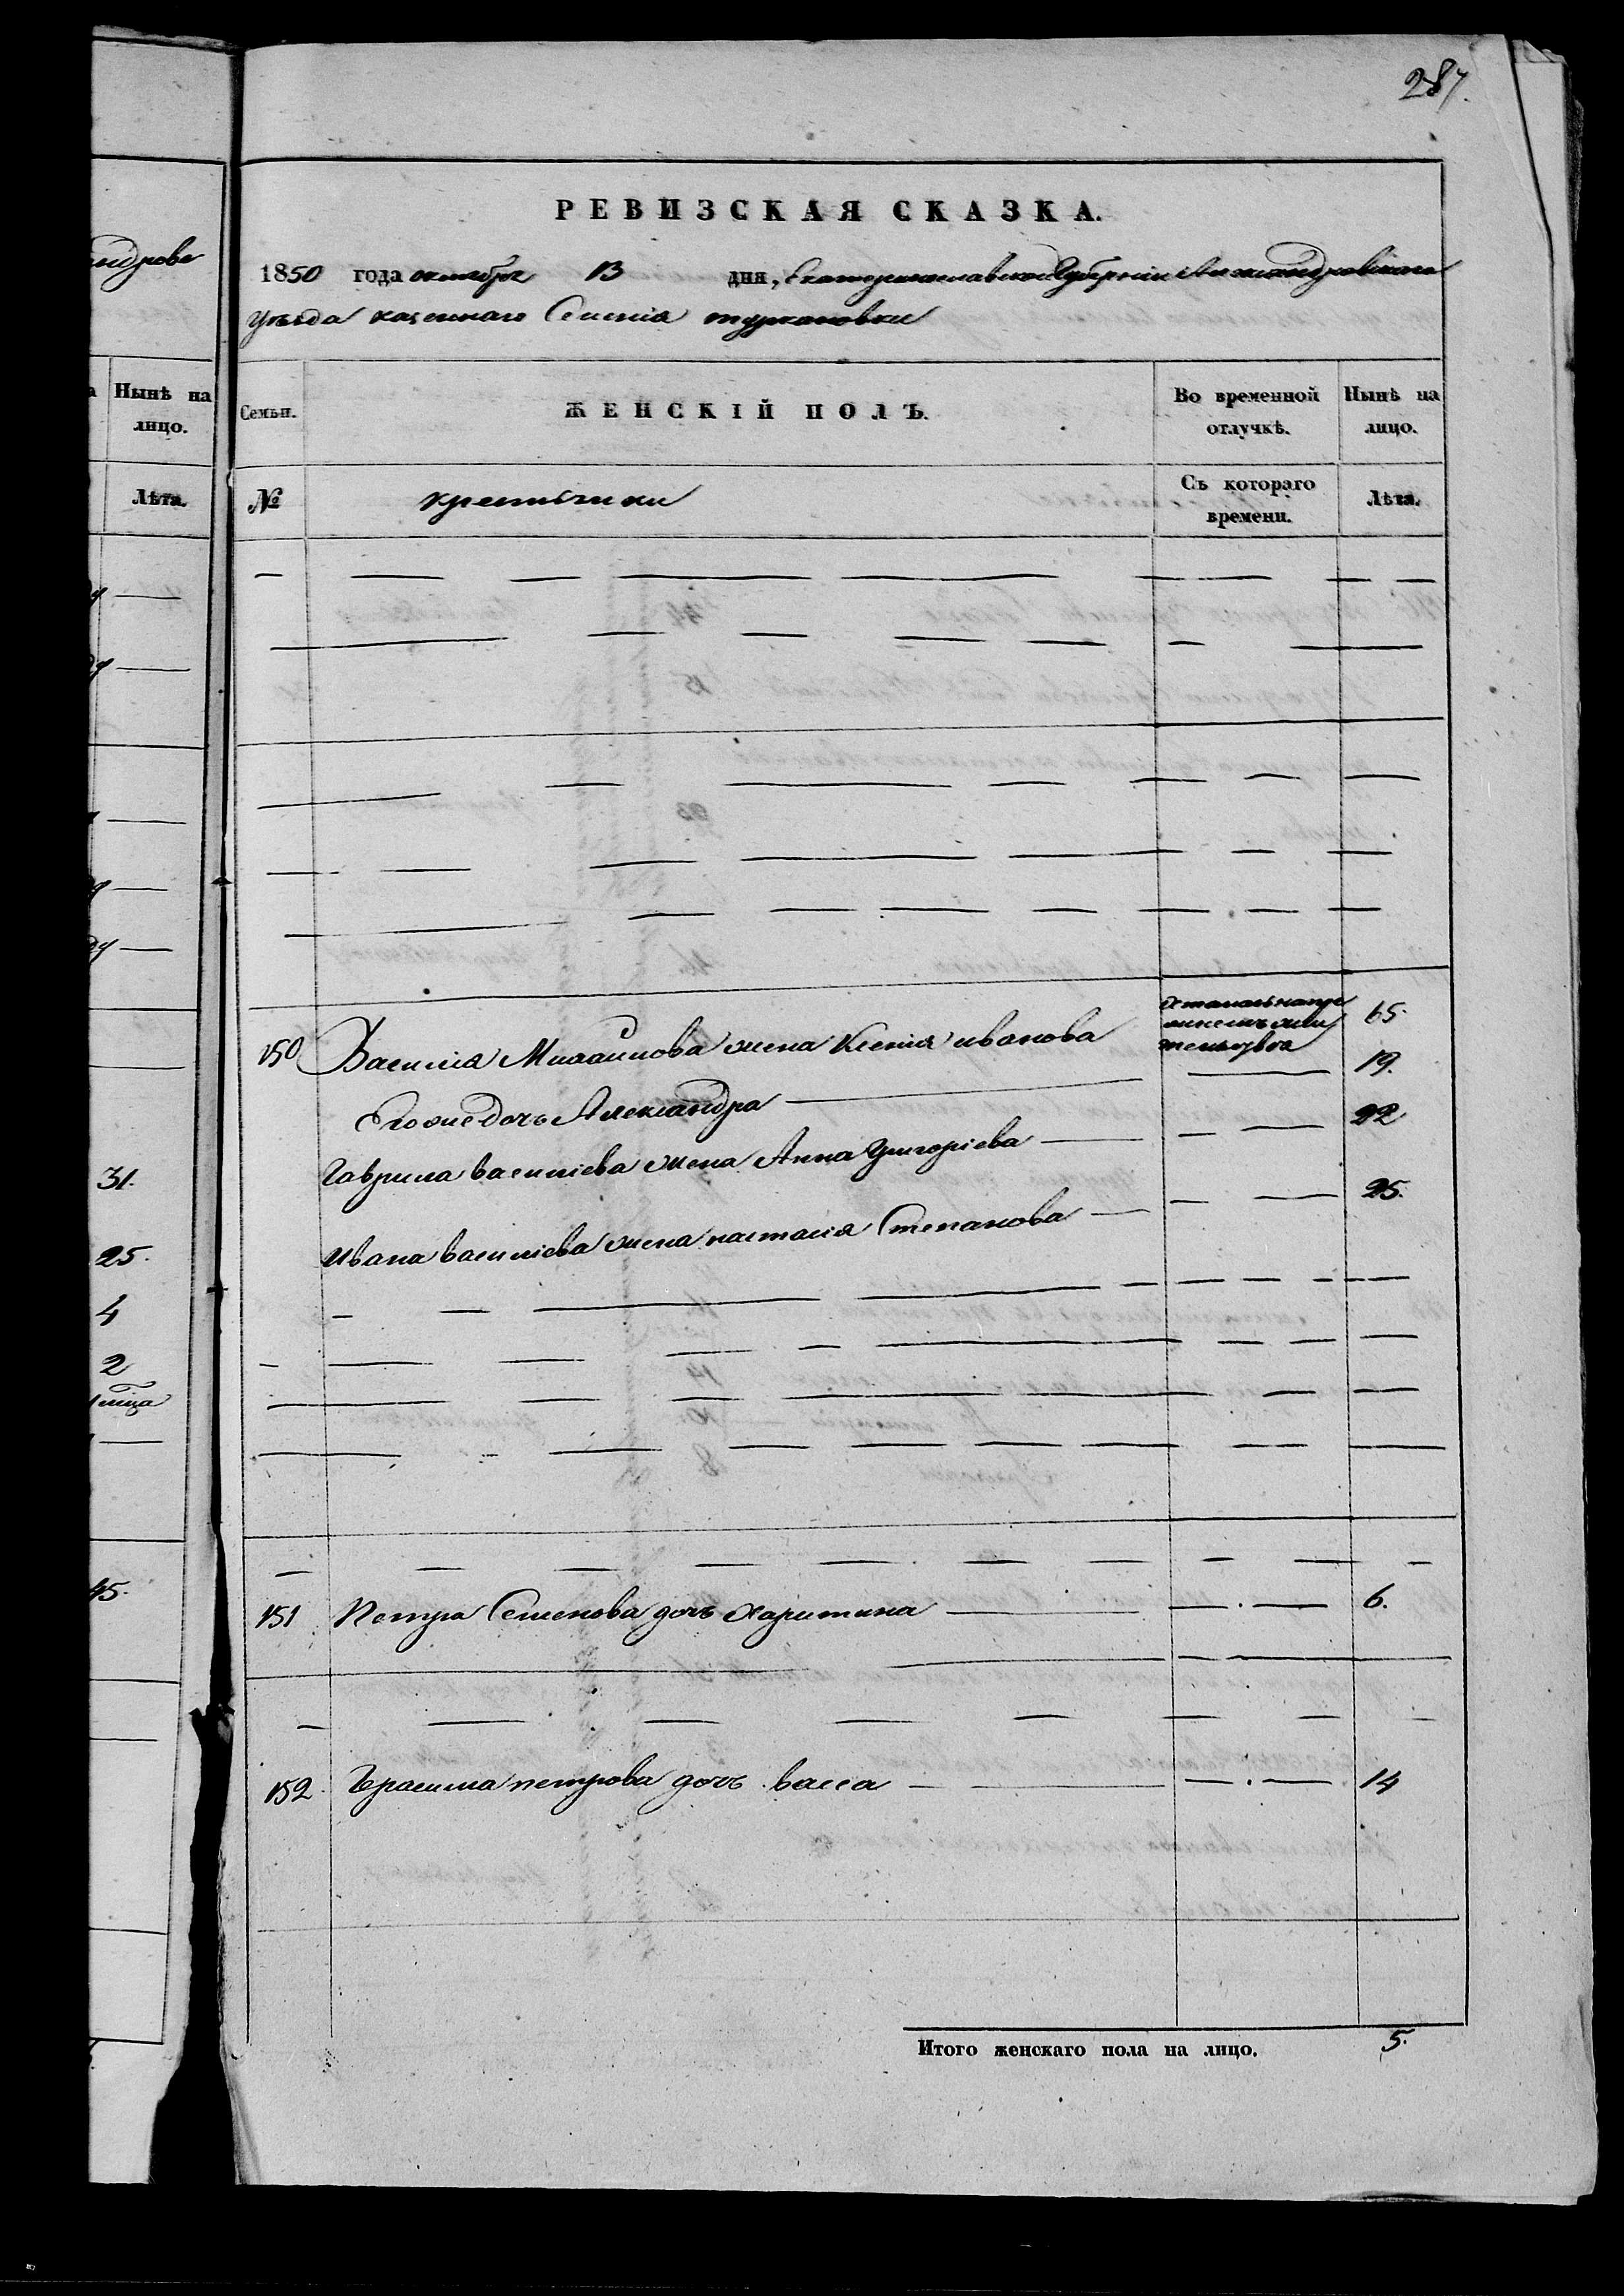 287.
ндрове
РЕВИЗСКАЯ СКАЗКА.
1850 года октября 13 дня, Екатеринославской Губернии Александровского
Уезда казенного Селения туркановки
Нынѣ на лицо.
Лѣта.
Семьи.
ЖЕНСКІЙ ПОЛЪ.
Во временной отлучкѣ.
Нынѣ на лицо.
№
крестьянки
Съ котораго времени.
Лѣта.
150 Василия Михайлова жена Ксения иванова 65.
Его же дочь Александра 19.
Гаврила василиева жена Анна Григориева 22
Ивана василиева жена настасия Степанова 25.
31.
25.
4
2
45.
151 Петра Семенова дочь Харитина 6.
152. Герасима петрова дочь васса 14
Итого женскаго пола на лицо. 5.